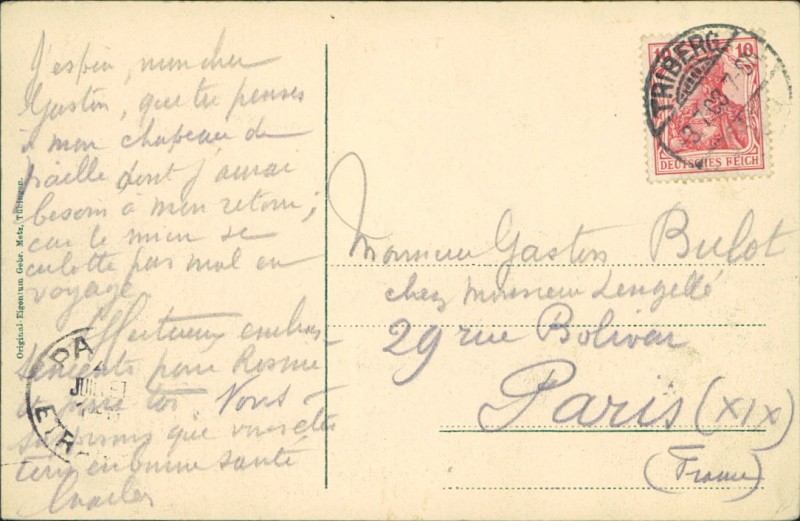 J'espère, mon cher
Gaston, que tu penses
à mon chapeau de
paille dont j'aurai
besoin à mon retour;
car le mien se
culotte pas mal en
voyage
Affectueux embras-
sements pour Rosine
et pour toi. Nous
supposons que vous êtes
tous en bonne santé
Charles
Original-Eigentum Gebr. Metz, Tübingen.
PA
JUIL
ETR
TRIBERG
3.7.09.7-8
10 10
DEUTSCHES REICH
Monsieur Gaston Bulot
chez Monsieur Lengellé
29 rue Bolivar
Paris (XIX)
(France)